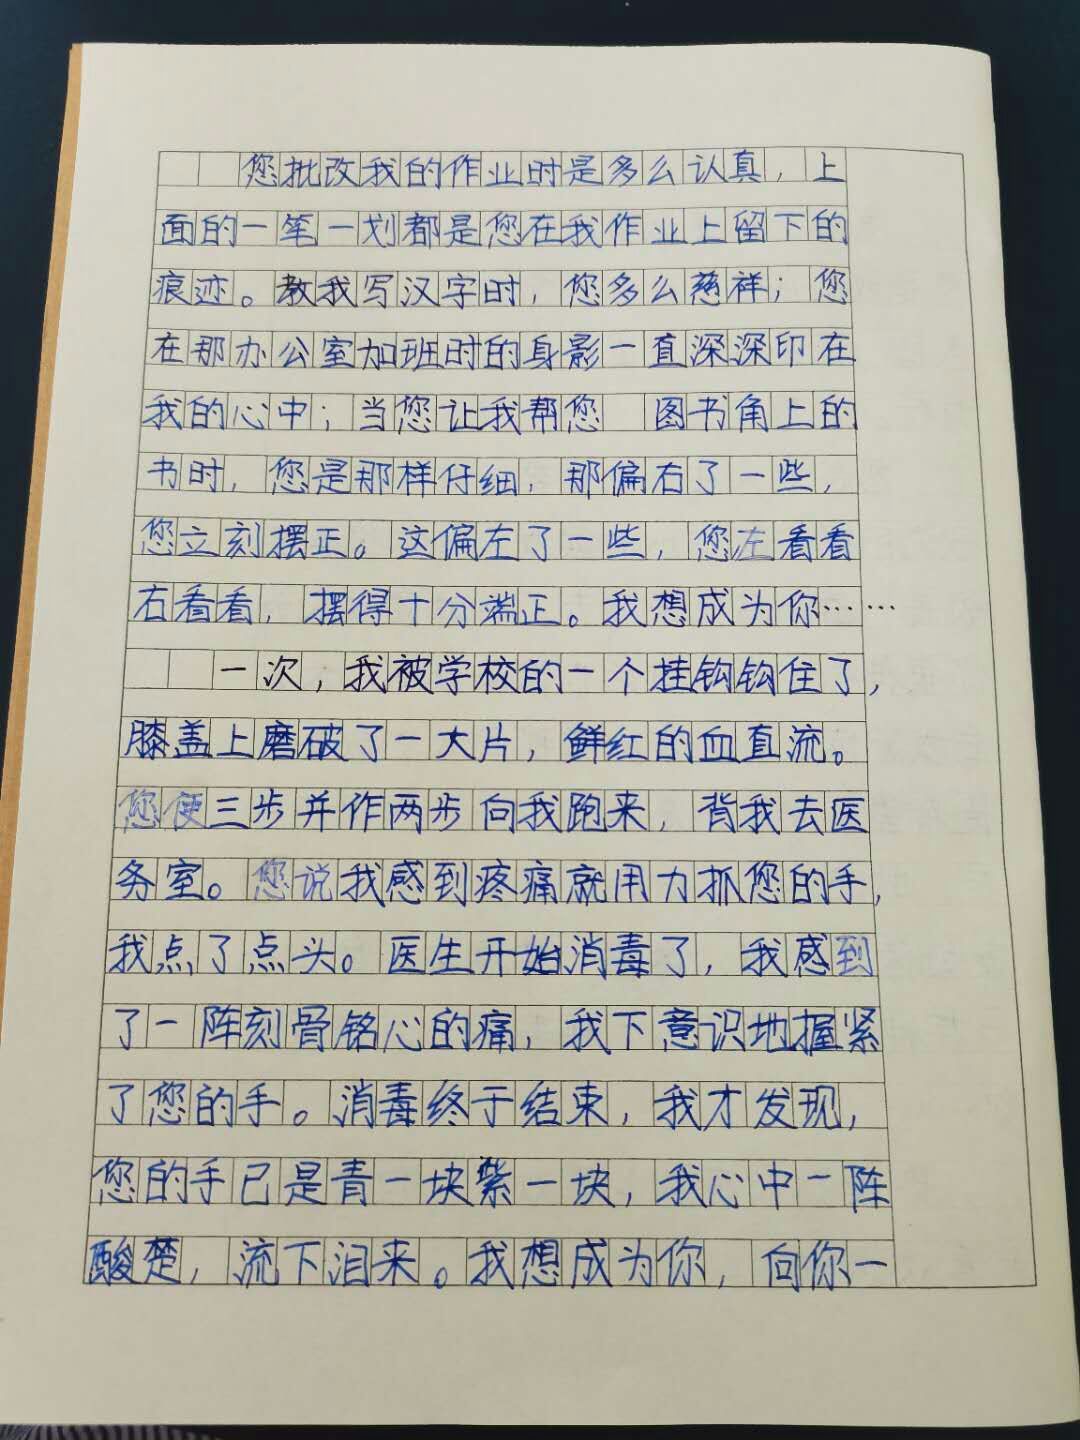 您批改我的作业时是多么认真，上
面的一笔一划都是您在我作业上留下的
痕迹。教我写汉字时，您多么慈祥；您
在那办公室加班时的身影一直深深印在
我的心中；当您让我帮您 图书角上的
书时，您是那样仔细，那偏右了一些，
您立刻摆正。这偏左了一些，您左看看
右看看，摆得十分端正。我想成为你……
一次，我被学校的一个挂钩钩住了，
膝盖上磨破了一大片，鲜红的血直流。
您便三步并作两步向我跑来，背我去医
务室。您说我感到疼痛就用力抓您的手，
我点了点头。医生开始消毒了，我感到
了一阵刻骨铭心的痛，我下意识地握紧
了您的手。消毒终于结束，我才发现，
您的手已是青一块紫一块，我心中一阵
酸楚，流下泪来。我想成为你，向你一